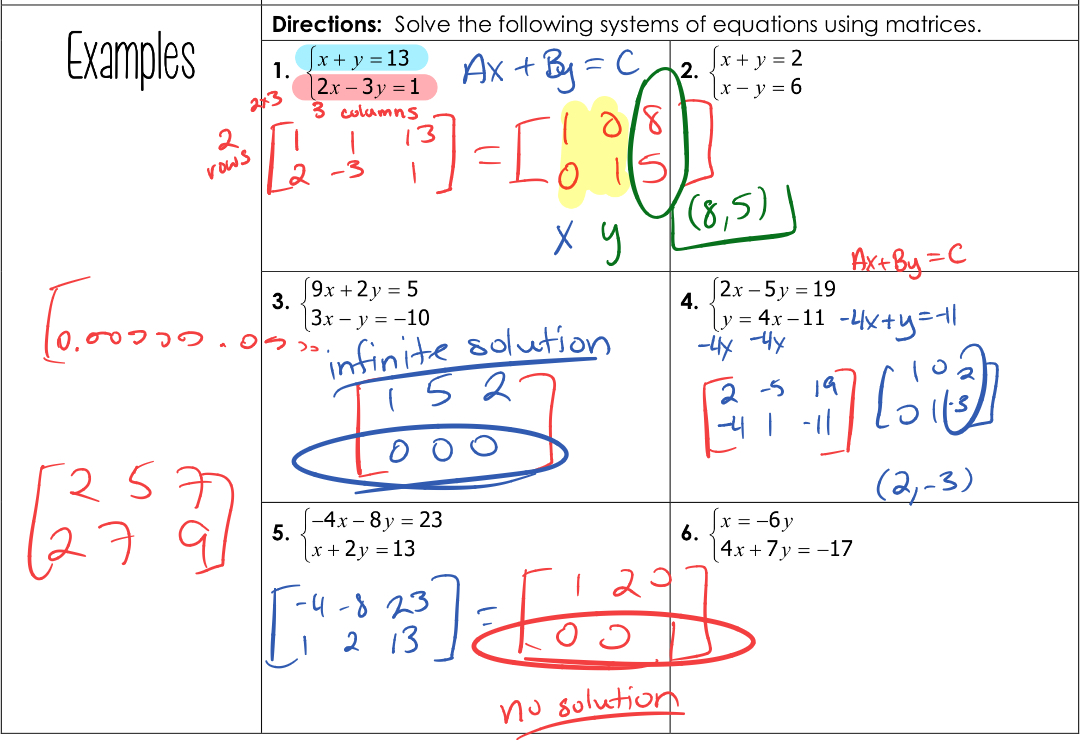 Examples
Directions: Solve the following systems of equations using matrices.
1. {x + y = 13
2x − 3y = 1
Ax + By = C
2x3
3 columns
2 rows
[1 1 13
2 -3 1]
= [1 0 8
0 1 5]
x y
(8,5)
2. {x + y = 2
x − y = 6
3. {9x + 2y = 5
3x − y = −10
infinite solution
[1 5 2
0 0 0]
Ax+By=C
4. {2x − 5y = 19
y = 4x − 11
-4x+y=-11
-4x -4x
[2 -5 19
-4 1 -11]
[1 0 2
0 1 -3]
(2,-3)
[2 5 7
2 7 9]
5. {−4x − 8y = 23
x + 2y = 13
[-4 -8 23
1 2 13]
= [1 2 0
0 0 1]
no solution
6. {x = −6y
4x + 7y = −17